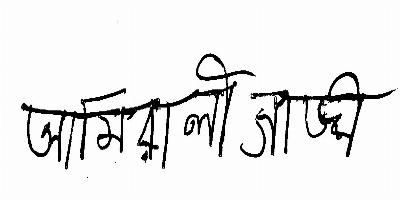 আমিরালী গাজী